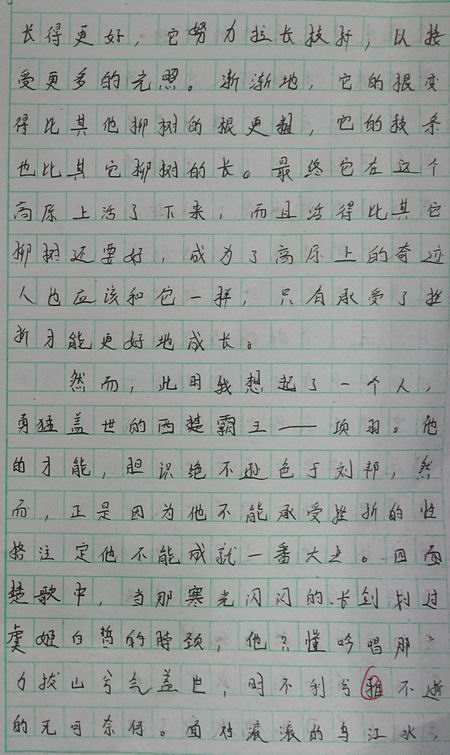 长得更好，它努力拉长枝折，以接
受更多的光照。渐渐地，它的根变
得比其他柳树的根更粗，它的枝条
也比其它柳树的长。最终它在这个
高原上活了下来，而且活得比其它
柳树还要好，成为了高原上的奇迹
人也应该和它一样，只有承受了挫
折才能更好地成长。
然而，此时我想起了一个人，
勇猛盖世的西楚霸王——项羽。他
的才能，胆识绝不逊色于刘邦，然
而，正是因为他不能承受挫折的性
格注定他不能成就一番大业。四面
楚歌中，当那寒光闪闪的长剑划过
虞姬白皙的脖颈，他只懂吟唱那“
力拔山兮气盖世，时不利兮骓不逝
的无可奈何。面对滚滚的乌江水，